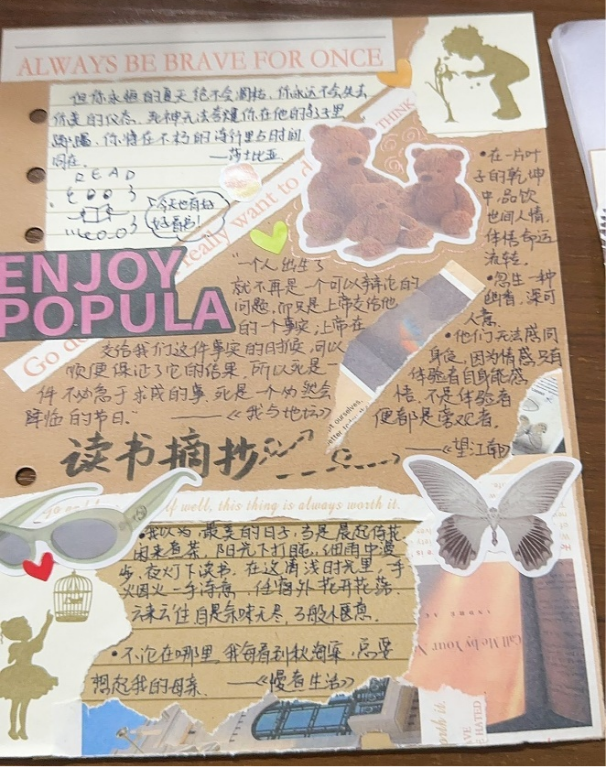 ALWAYS BE BRAVE FOR ONCE
但你永恒的夏天绝不会凋枯,你永远不会失去
你美的仪态.死神无法夸耀你在他的影子里
踯躅.你将在不朽的诗行里与时间
同在.
——莎士比亚.
READ
今天也有好
好看书!
THINK
really want to d
ENJOY
POPULA
Go d
"一个人出生了
就不再是一个可以辩论的
问题,而只是上帝交给他
的一个事实;上帝在
交给我们这件事实的时候,可以
顺便保证了它的结果,所以死是一
件不必急于求成的事,死是一个必然会
降临的节日."
——《我与地坛》
•在一片叶
子的乾坤
中,品饮
世间人情,
体悟命运
流转.
•忽生一种
幽香,深可
人意.
•他们无法感同
身受,因为情感只有
体验者自身能感
悟.不是体验者
便都是旁观者.
——《望江南》
ourselves,
读书摘抄
go and f
f well, this thing is always worth it.
•我以为,最美的日子,当是晨起侍花,
闲来煮茶,阳光下打盹,细雨中漫
步,夜灯下读书,在这清浅时光里,手
一烟火一手诗意,任窗外花开花落
云来云往自是余味无尽,万般惬意.
•不论在哪里,我每看到秋海棠,总要
想起我的母亲.
——《慢者生活》
Call Me by Your N
HATED